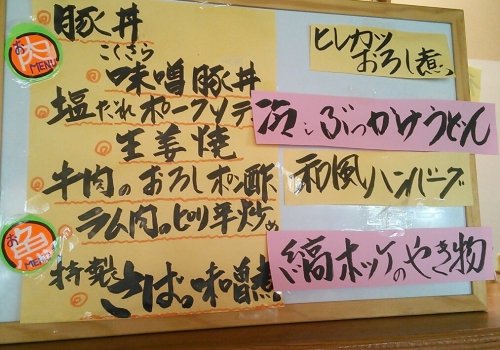 お肉
MENU
豚丼
こくうま
味噌豚丼
塩だれポークソテー
生姜焼
牛肉のおろしポン酢
ラム肉のピリ辛炒め
お魚
MENU
特製
さばの味噌煮
ヒレカツ
おろし煮
冷しぶっかけうどん
和風ハンバーグ
縞ホッケのやき物